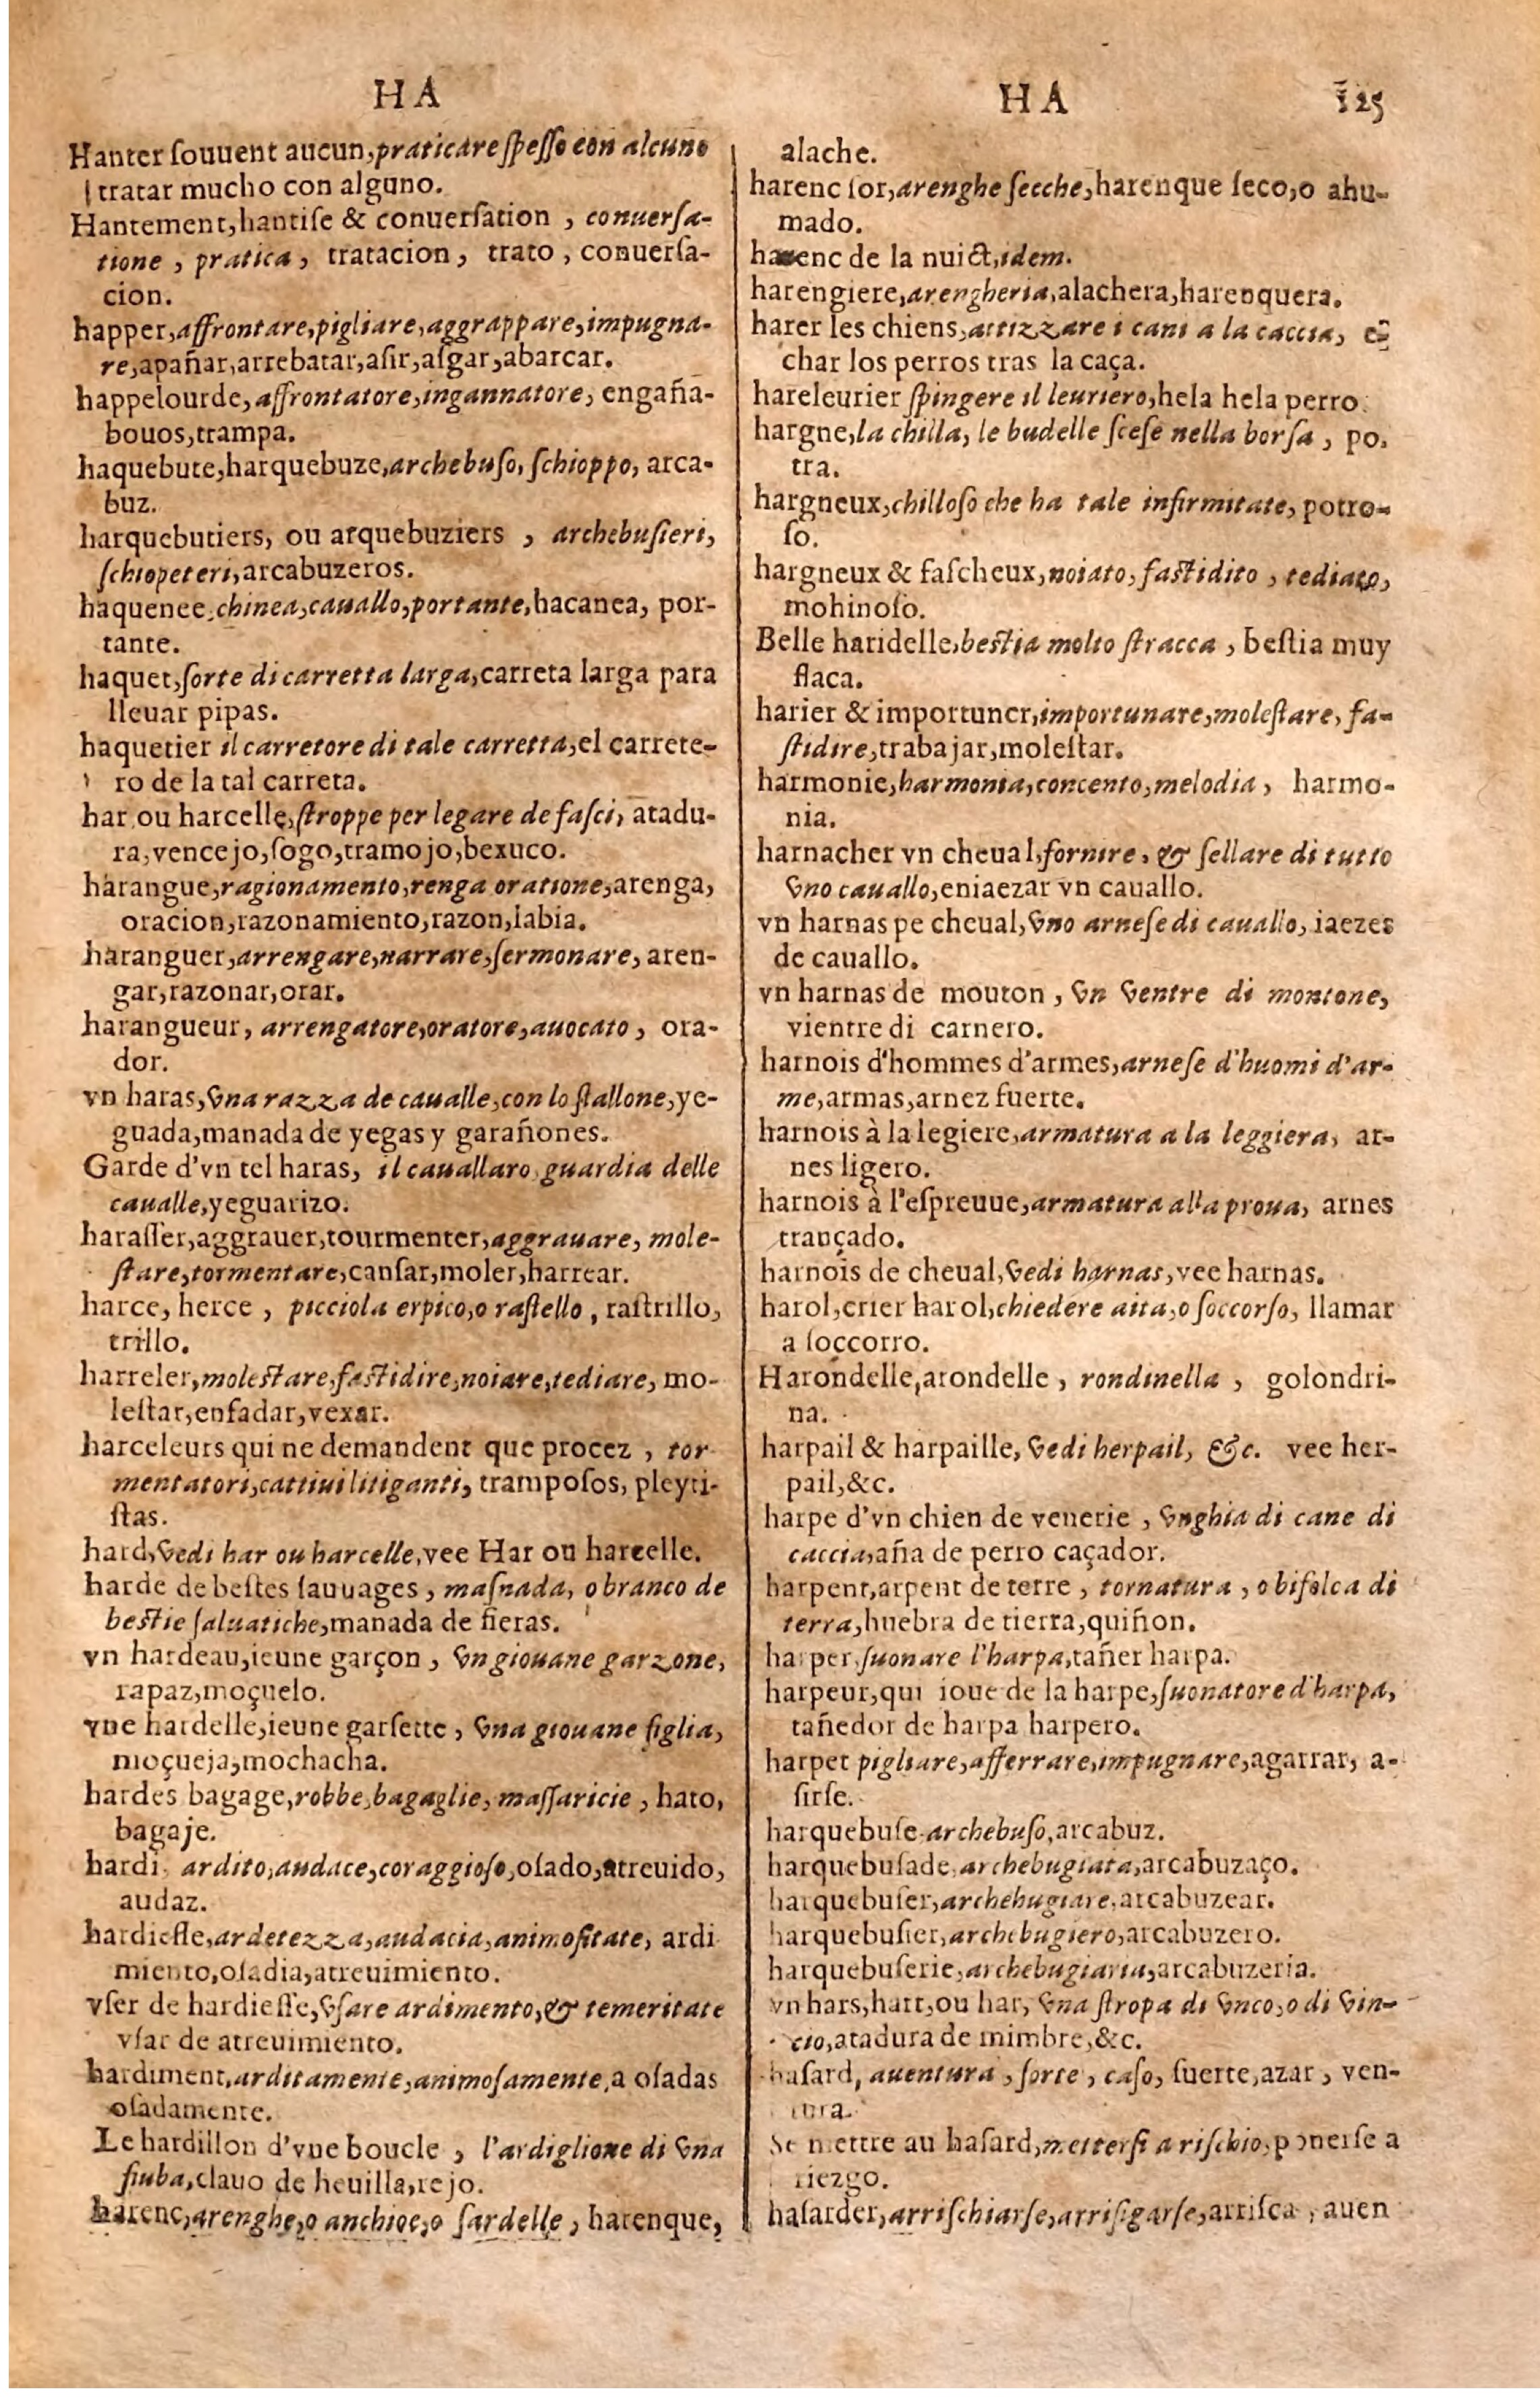 HA
Hanter ſouuent aucun,praticare ſpeſſo con alcuno
tratar mucho con alguno.
Hantement,hantiſe & conuerſation , conuerſa-
tione , pratica , tratacion, trato , conuerſa-
cion.
happer,affrontare,pigliare,aggrappare,impugna-
re,apañar,arrebatar,aſir,aſgar,abarcar.
happelourde,affrontatore,ingannatore, engaña-
bouos,trampa.
haquebute,harquebuze,archebuſo, ſchioppo, arca-
buz.
harquebutiers, ou arquebuziers , archebuſieri,
ſchiopeteri,arcabuzeros.
haquenee,chinea,cauallo,portante,hacanea, por-
tante.
haquet,ſorte di carretta larga,carreta larga para
lleuar pipas.
haquetier il carretore di tale carretta,el carrete-
ro de la tal carreta.
har ou harcelle,ſtroppe per legare de faſci, atadu-
ra,vencejo,ſogo,tramojo,bexuco.
harangue,ragionamento,renga oratione,arenga,
oracion,razonamiento,razon,labia.
haranguer,arrengare,narrare,ſermonare, aren-
gar,razonar,orar.
harangueur, arrengatore,oratore,auocato , ora-
dor.
vn haras,vna razza de caualle,con lo ſtallone,ye-
guada,manada de yegas y garañones.
Garde d'vn tel haras, il cauallaro guardia delle
caualle,yeguarizo.
haraſſer,aggrauer,tourmenter,aggrauare, mole-
ſtare,tormentare,canſar,moler,harrear.
harce, herce , picciola erpico,o raſtello , raſtrillo,
trillo.
harreler,moleſtare,faſtidire,noiare,tediare, mo-
leſtar,enfadar,vexar.
harceleurs qui ne demandent que procez , tor
mentatori,cattiui litiganti, trampoſos, pleyti-
ſtas.
hard,vedi har ou harcelle,vee Har ou harcelle.
harde de beſtes ſauuages , maſnada, o branco de
beſtie ſaluatiche,manada de fieras.
vn hardeau,ieune garçon , vn giouane garzone,
rapaz,moçuelo.
vne hardelle,ieune garſette , vna giouane figlia,
moçueja,mochacha.
hardes bagage,robbe,bagaglie, maſſaricie , hato,
bagaje.
hardi ardito,audace,coraggioſo,oſado,atreuido,
audaz.
hardieſſe,ardetezza,audacia,animoſitate, ardi
miento,oſadia,atreuimiento.
vſer de hardieſſe,vſare ardimento,& temeritate
vſar de atreuimiento.
hardiment,arditamente,animoſamente,a oſadas
oſadamente.
Le hardillon d'vne boucle , l'ardiglione di vna
fiuba,clauo de heuilla,rejo.
harenc,arenghe,o anchioe,o ſardelle , harenque,
HA 125
alache.
harenc ſor,arenghe ſecche,harenque ſeco,o ahu-
mado.
harenc de la nuict,idem.
harengiere,arengheria,alachera,harenquera.
harer les chiens,attizzare i cani a la caccia, e-
char los perros tras la caça.
hareleurier ſpingere il leuriero,hela hela perro
hargne,la chilla, le budelle ſceſe nella borſa , po-
tra.
hargneux,chilloſo che ha tale infirmitate, potro-
ſo.
hargneux & faſcheux,noiato, faſtidito , tediato,
mohinoſo.
Belle haridelle,beſtia molto ſtracca , beſtia muy
flaca.
harier & importuner,importunare,moleſtare, fa-
ſtidire,trabajar,moleſtar.
harmonie,harmonia,concento,melodia , harmo-
nia.
harnacher vn cheual,fornire, & ſellare di tutto
vno cauallo,eniaezar vn cauallo.
vn harnas pe cheual,vno arneſe di cauallo, iaezes
de cauallo.
vn harnas de mouton , vn ventre di montone,
vientre di carnero.
harnois d'hommes d'armes,arneſe d'huomi d'ar-
me,armas,arnez fuerte.
harnois à la legiere,armatura a la leggiera, ar-
nes ligero.
harnois à l'eſpreuue,armatura alla proua, arnes
trançado.
harnois de cheual,vedi harnas,vee harnas.
harol,crier harol,chiedere aita,o ſoccorſo, llamar
a ſoccorro.
Harondelle,arondelle , rondinella , golondri-
na.
harpail & harpaille, vedi herpail, &c. vee her-
pail,&c.
harpe d'vn chien de venerie , vnghia di cane di
caccia,aña de perro caçador.
harpent,arpent de terre , tornatura , o bifolca di
terra,huebra de tierra,quiñon.
harper,ſuonare l'harpa,tañer harpa.
harpeur,qui ioue de la harpe,ſuonatore d'harpa,
tañedor de harpa harpero.
harper pigliare,afferrare,impugnare,agarrar, a-
ſirſe.
harquebuſe archebuſo,arcabuz.
harquebuſade,archebugiata,arcabuzaço.
harquebuſer,archebugiare,arcabuzear.
harquebuſier,archebugiero,arcabuzero.
harquebuſerie,archebugiaria,arcabuzeria.
vn hars,hart,ou har, vna ſtropa di vnco,o di vin-
cio,atadura de mimbre,&c.
haſard, auentura , ſorte , caſo, ſuerte,azar , ven-
tura.
Se mettre au haſard,metterſi a riſchio,ponerſe a
riezgo.
haſarder,arriſchiarſe,arriſigarſe,arriſca , auen